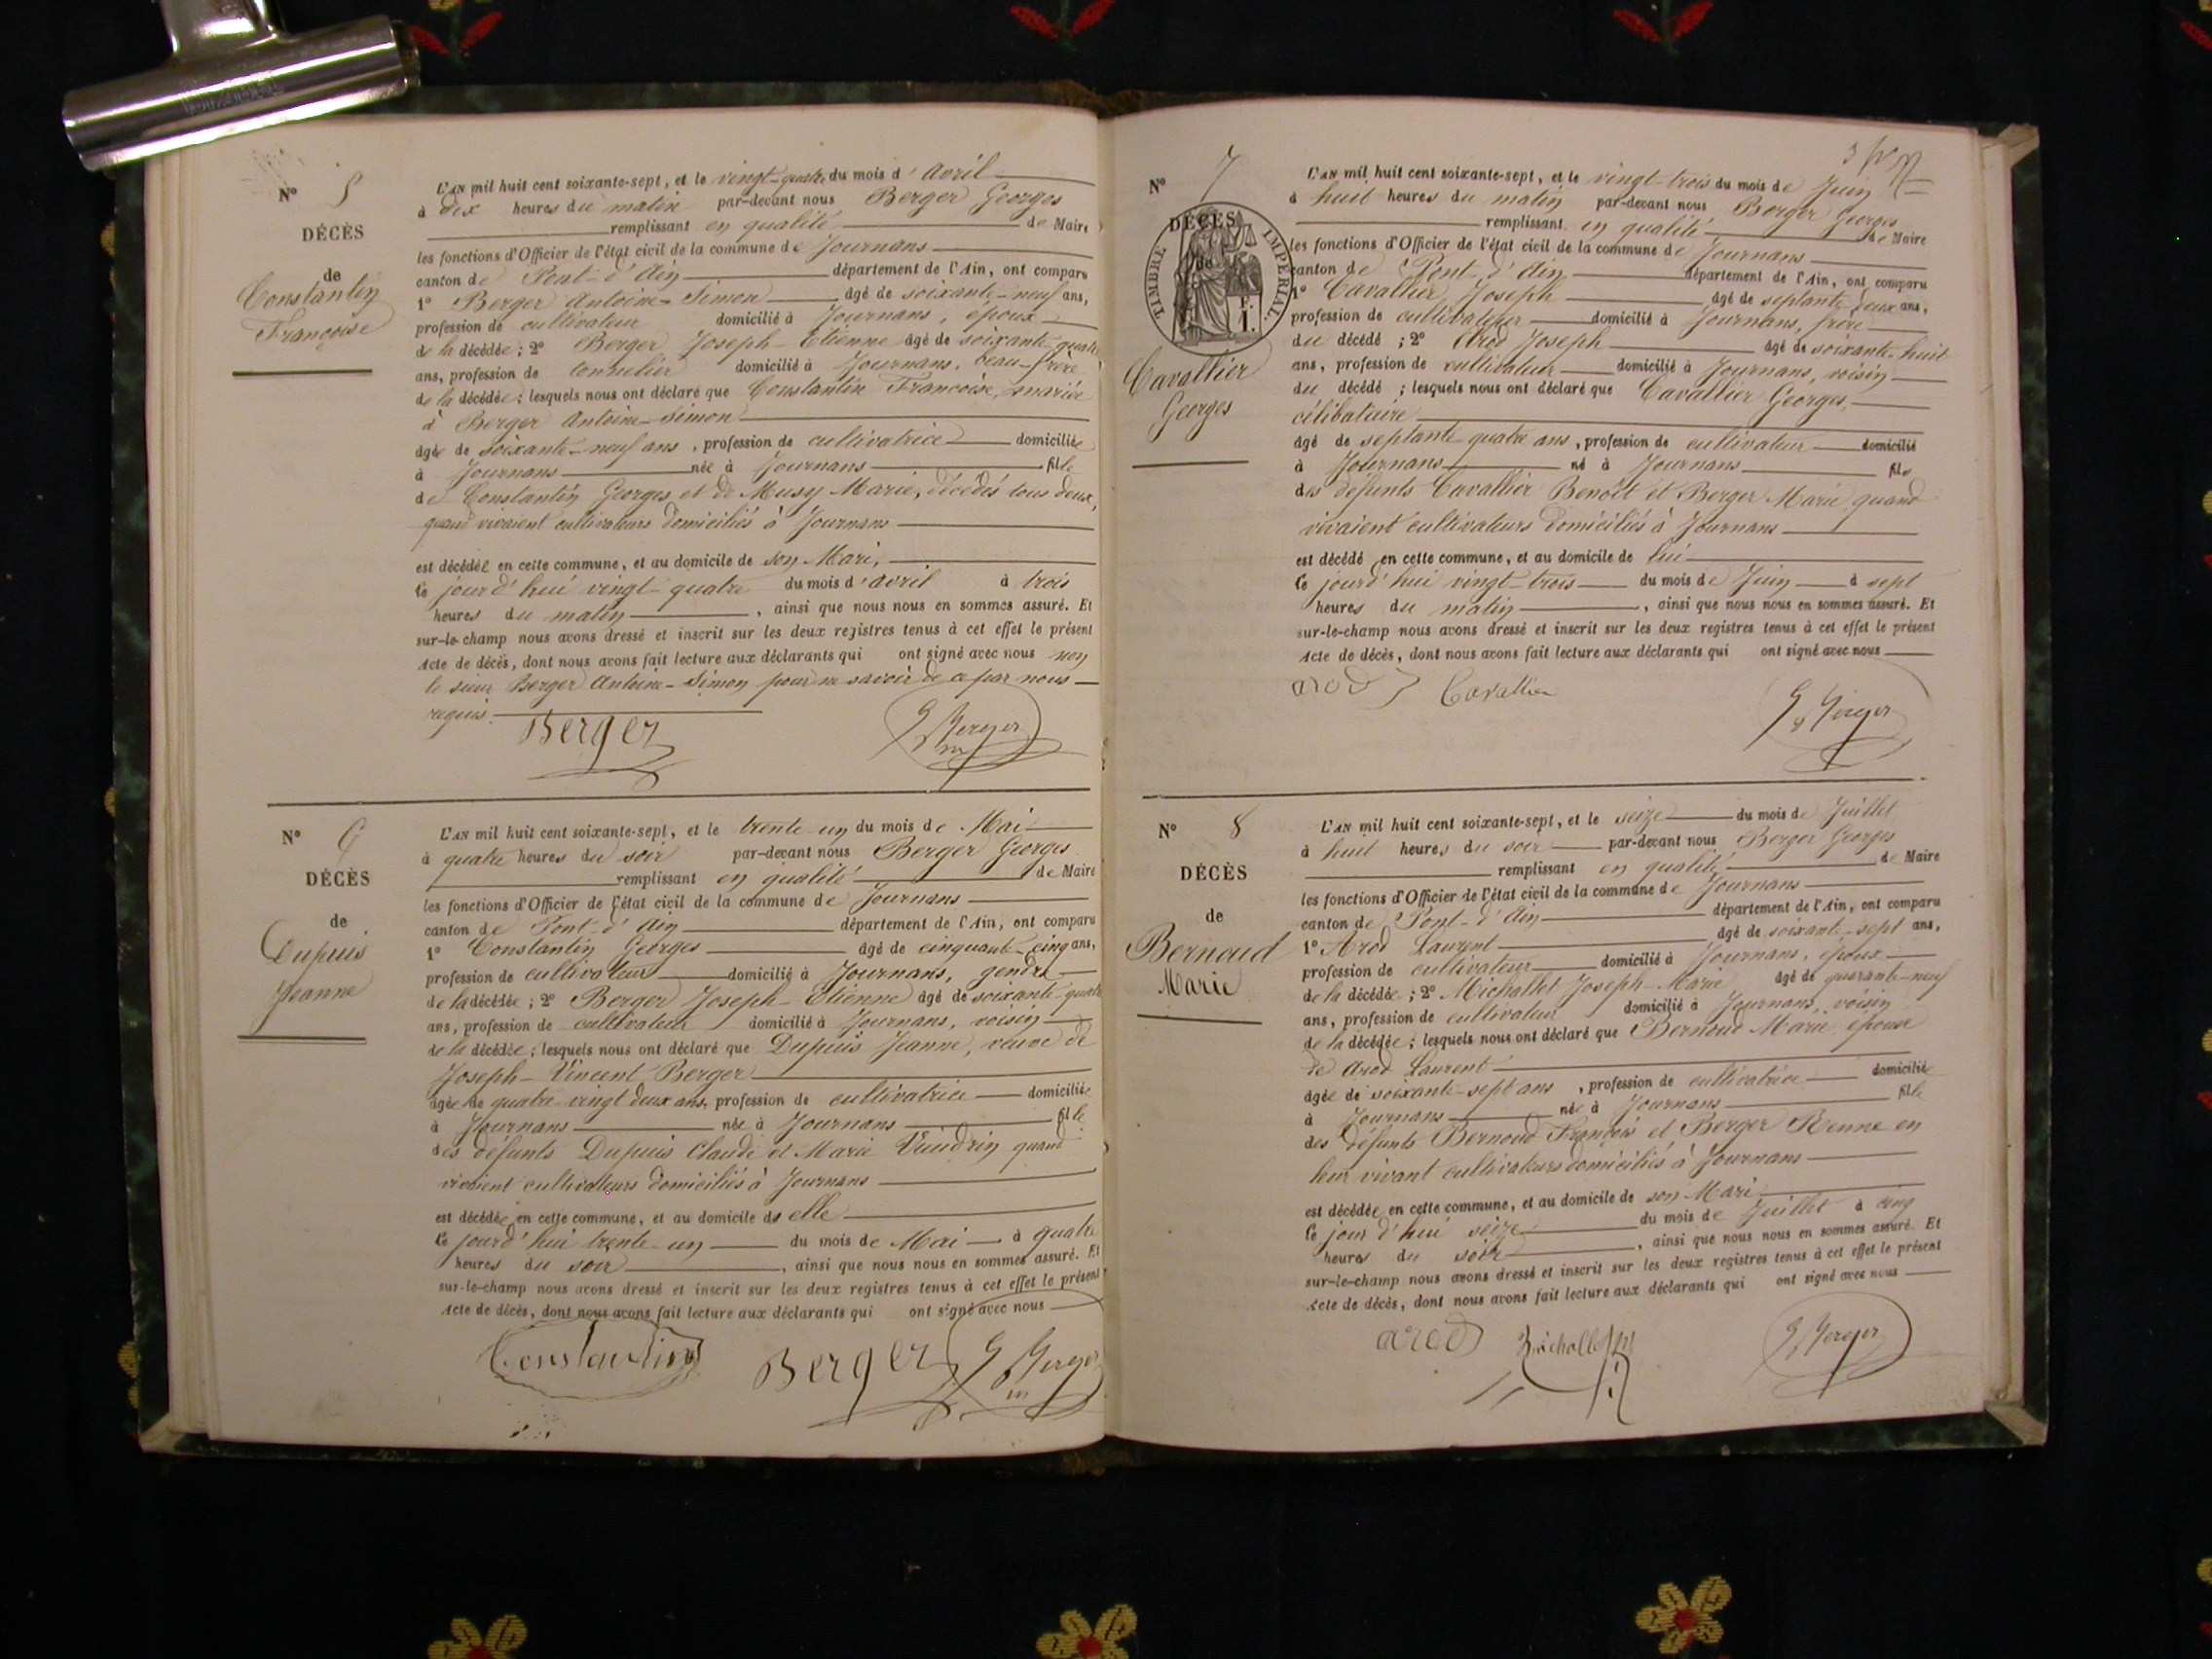 N° 5
DÉCÈS
de
Constantin
Françoise
L'AN mil huit cent soixante-sept, et le vingt-quatre du mois d'avril
à dix heures du matin par-devant nous Berger Georges
remplissant en qualité de Maire
les fonctions d'Officier de l'état civil de la commune de Journans
canton de Pont-d'Ain département de l'Ain, ont comparu
1° Berger Antoine-Simon âgé de soixante-neuf ans,
profession de cultivateur domicilié à Journans, époux
de la décédée; 2° Berger Joseph-Etienne âgé de soixante-quatre
ans, profession de domicilié à Journans, beau-frère
de la décédée; lesquels nous ont déclaré que Constantin Françoise, mariée
à Berger Antoine-Simon
âgée de soixante-neuf ans, profession de cultivatrice domiciliée
à Journans née à Journans fille
de Constantin Georges et de Musy Marie, décédés tous deux,
quand vivaient cultivateurs domiciliés à Journans
est décédée en cette commune, et au domicile de son Mari,
ce jourd'hui vingt-quatre du mois d'avril à trois
heures du matin, ainsi que nous nous en sommes assuré. Et
sur-le-champ nous avons dressé et inscrit sur les deux registres tenus à cet effet le présent
Acte de décès, dont nous avons fait lecture aux déclarants qui ont signé avec nous non
le sieur Berger Antoine-Simon pour ne savoir de ce par nous
requis.
Berger G Berger
N° 6
DÉCÈS
de
Dupuis
Jeanne
L'AN mil huit cent soixante-sept, et le trente-un du mois de Mai
à quatre heures du soir par-devant nous Berger Georges
remplissant en qualité de Maire
les fonctions d'Officier de l'état civil de la commune de Journans
canton de Pont-d'Ain département de l'Ain, ont comparu
1° Constantin Georges âgé de cinquante-cinq ans,
profession de cultivateur domicilié à Journans, gendre
de la décédée; 2° Berger Joseph-Etienne âgé de soixante-quatre
ans, profession de cultivateur domicilié à Journans, voisin
de la décédée; lesquels nous ont déclaré que Dupuis Jeanne, veuve de
Joseph-Vincent Berger
âgée de quatre-vingt deux ans, profession de cultivatrice domiciliée
à Journans née à Journans fille
des défunts Dupuis Claude et Marie Vuidrin quand
vivaient cultivateurs domiciliés à Journans
est décédée en cette commune, et au domicile de elle
ce jourd'hui trente-un du mois de Mai à quatre
heures du soir, ainsi que nous nous en sommes assuré. Et
sur-le-champ nous avons dressé et inscrit sur les deux registres tenus à cet effet le présent
Acte de décès, dont nous avons fait lecture aux déclarants qui ont signé avec nous
Constantin Berger G Berger
N° 7
DÉCÈS
de
TIMBRE IMPÉRIAL
F.
1.
Cavallier
Georges
L'AN mil huit cent soixante-sept, et le vingt-trois du mois de Juin
à huit heures du matin par-devant nous Berger Georges
remplissant en qualité de Maire
les fonctions d'Officier de l'état civil de la commune de Journans
canton de Pont-d'Ain département de l'Ain, ont comparu
1° Cavallier Joseph âgé de septante deux ans,
profession de cultivateur domicilié à Journans, frère
du décédé; 2° Arod Joseph âgé de soixante-huit
ans, profession de cultivateur domicilié à Journans, voisin
du décédé; lesquels nous ont déclaré que Cavallier Georges,
célibataire
âgé de septante quatre ans, profession de cultivateur domicilié
à Journans né à Journans fils
des défunts Cavallier Benoît et Berger Marie quand
vivaient cultivateurs domiciliés à Journans
est décédé en cette commune, et au domicile de lui
ce jourd'hui vingt-trois du mois de Juin à sept
heures du matin, ainsi que nous nous en sommes assuré. Et
sur-le-champ nous avons dressé et inscrit sur les deux registres tenus à cet effet le présent
Acte de décès, dont nous avons fait lecture aux déclarants qui ont signé avec nous
arod Cavallier G Berger
N° 8
DÉCÈS
de
Bernoud
Marie
L'AN mil huit cent soixante-sept, et le seize du mois de Juillet
à huit heures du soir par-devant nous Berger Georges
remplissant en qualité de Maire
les fonctions d'Officier de l'état civil de la commune de Journans
canton de Pont-d'Ain département de l'Ain, ont comparu
1° Arod Laurent âgé de soixante-sept ans,
profession de cultivateur domicilié à Journans, époux
de la décédée; 2° Michallet Joseph-Marie âgé de quarante-neuf
ans, profession de cultivateur domicilié à Journans, voisin
de la décédée; lesquels nous ont déclaré que Bernoud Marie épouse
de Arod Laurent
âgée de soixante-sept ans, profession de cultivatrice domiciliée
à Journans née à Journans fille
des défunts Bernoud François et Berger Benne en
leur vivant cultivateurs domiciliés à Journans
est décédée en cette commune, et au domicile de son Mari
ce jour d'hui seize du mois de Juillet à cinq
heures du soir, ainsi que nous nous en sommes assuré. Et
sur-le-champ nous avons dressé et inscrit sur les deux registres tenus à cet effet le présent
Acte de décès, dont nous avons fait lecture aux déclarants qui ont signé avec nous
arod Michallet G Berger